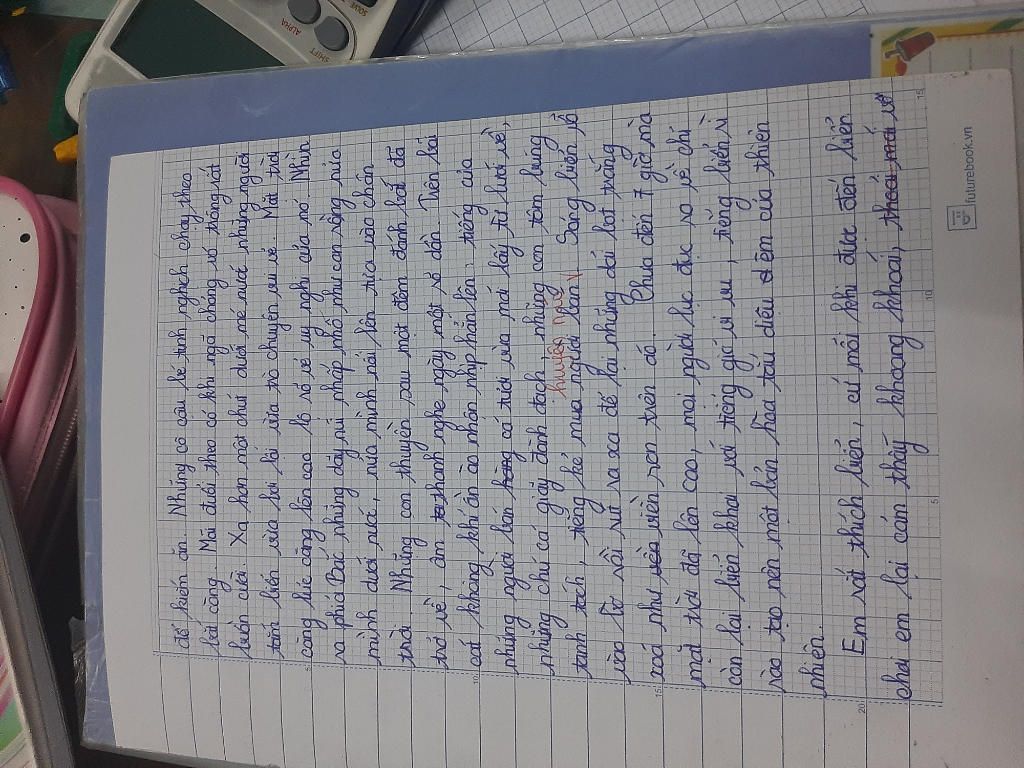 để kiếm ăn. Những cô cậu bé tinh nghịch chạy theo
bắt còng. Mải đuổi theo có khi ngã chỏng vó trông rất
buồn cười. Xa hơn một chút dưới mé nước những người
tắm biển vừa bơi lội vừa trò chuyện vui vẻ. Mặt trời
càng lúc càng lên cao ló rõ vẻ uy nghi của nó. Nhìn
ra phía Bắc những dãy núi nhấp nhô như con rồng nửa
mình dưới nước, nửa mình nổi lên tựa vào chân
trời. Những con thuyền sau một đêm đánh bắt đã
trở về, âm thanh nghe ngày một rõ dần. Trên bãi
cát không khí ồn ào nhộn nhịp hẳn lên: tiếng của
những người bán hàng cá tươi vừa mới lấy từ lưới về,
những chú cá giãy đành đạch, những con tôm búng
tanh tách, tiếng kẻ mua người bán
huyên náo
. Sóng biển vỗ
vào bờ rồi rút ra xa để lại những dải bọt trắng
xoá như viền ren trên áo. Chưa đến 7 giờ mà
mặt trời đã lên cao, mọi người lục đục ra về chỉ
còn lại biển khơi với tiếng gió vi vu, tiếng biển rì
rào tạo nên một bản hòa tấu diệu dền của thiên
nhiên.
Em rất thích biển, cứ mỗi khi được đến biển
chơi em lại cảm thấy khoang khoái, thoả mái
5
10
15
20
5
10
15
futurebook.vn
ALPHA
SHIFT
SOLVE